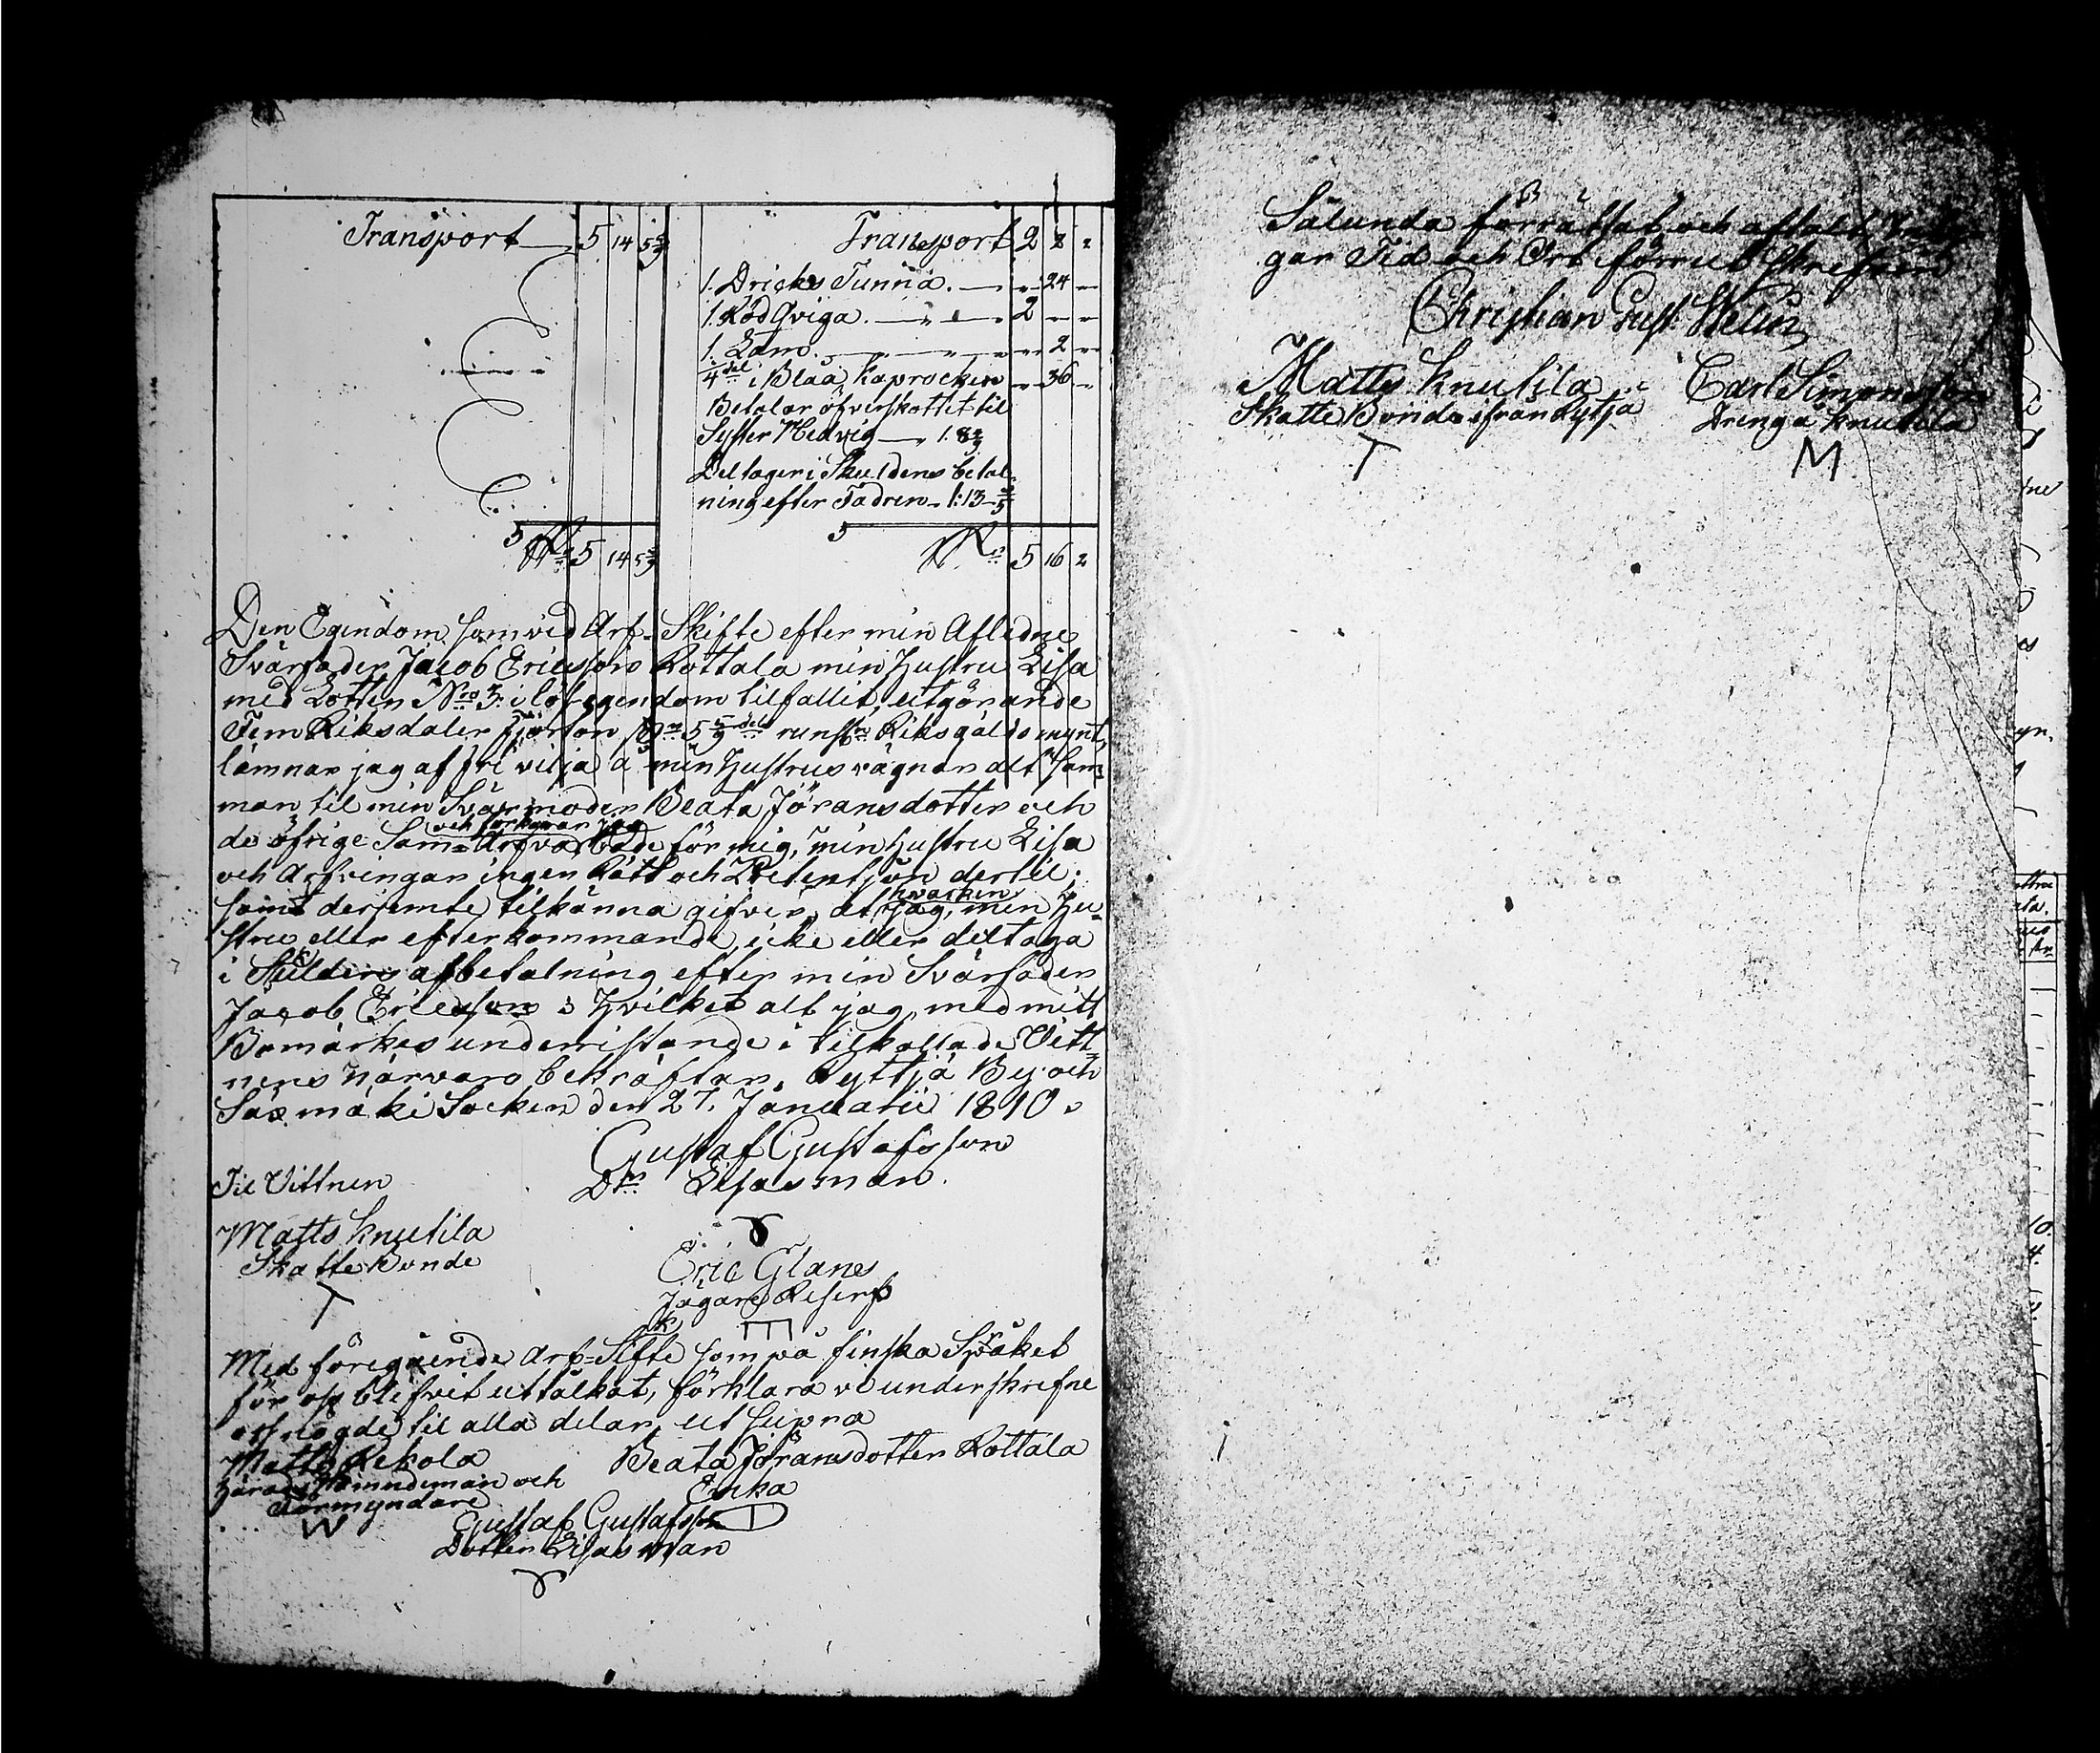 Transport 5 14 5 5/9
Transport 2 2 2
1. Dricks Tunna. 24
1. Röd Qviga. 2
1. Lam. 2
1/4 del i Blåa Kaprocken 36
Betalar öfverskottet til
Syster Hedvig 1. 8
Deltager i Skuldens betal-
ning efter Fadren 1:13
5 14 5 5/9
5 16 2
Den Egendom som vid Arf-Skifte efter min Aflidne
Svärfader Jacob Ericssons Rottala min Hustru Lisa
med Lotten Nro 3 i lös egendom tilfallit, utgörande
Fem Riksdaler Fjorton 5 5/9 del Riksgälds mynt,
lämnar jag af fri vilja å min Hustrus vägnar alt sam-
man til min Svärmoder Beata Jöransdotter och
och förklarar jag
de öfrige Sam-Arfvar, både för mig, min Hustru Lisa
och Arfvingar ingen Rätt och Pretention dertil;
hvarken
samt derjemte tilkänna gifves, at jag, min Hu-
stru eller efterkommande, icke eller deltaga
i Skuldens afbetalning efter min Svärfader
Jacob Ericsson; Hvilket alt jag med mitt
Bomärkes underristande i tilkallade Vitt-
nens närvaro bekräftar. Kyttjä By och
Säxmäki Socken den 27. Januarii 1810.
Gustaf Gustafsson
Til Vittnen
Lisas man.
Matts Knutila
Skatte Bonde
T
Eric Glanes
Jägare
Med föregående Arf-Skifte som på finska Språket
för oss blifvit uttålkat, förklara vi underskrefne
oss nögde til alla delar, ut supra
Matts Rekola
Beata Jöransdotter Rottala
Härads Nämndeman och
Enka
Förmyndare
W
Gustaf Gustafsson
Dotter Lisas man
Sålunda förrättat och aftalt
gar Tid och Ort förrut skrefven
Christian Gust. Helin
Matts Knutila
Carl Simonsson
Skatte Bonde från Kytjä
Dreng å Knutila
T
M